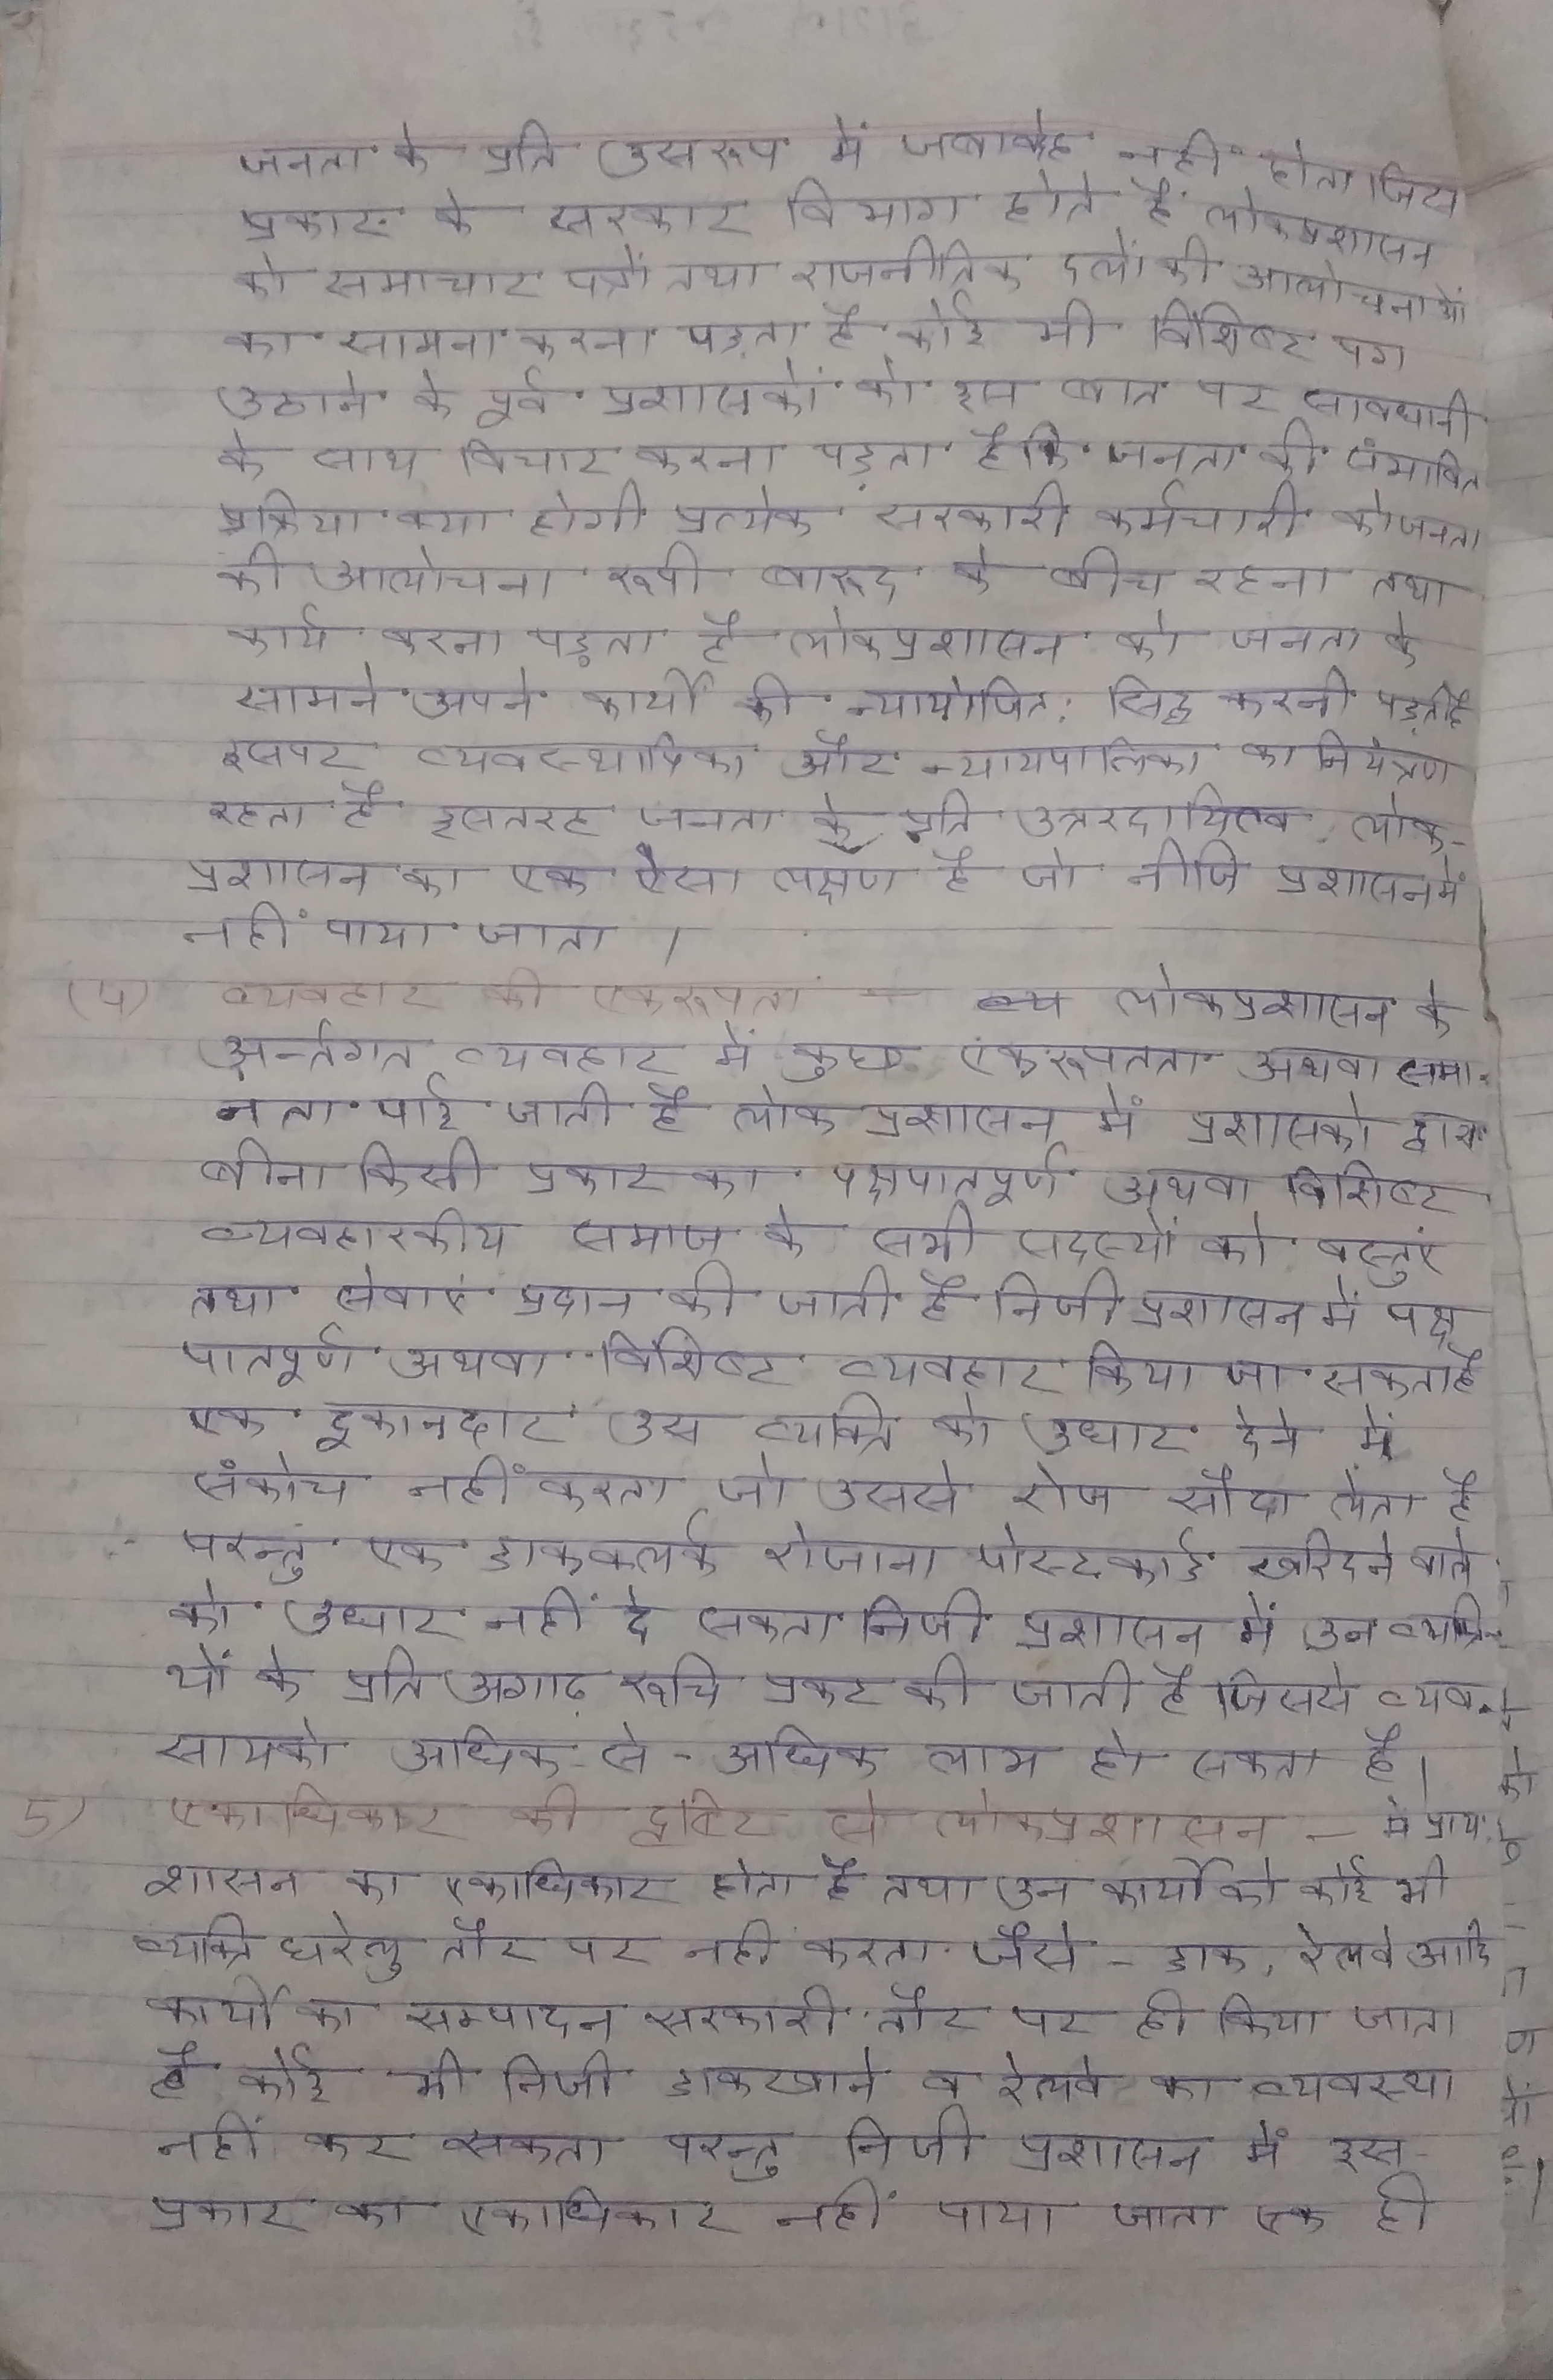 जनता के प्रति उस रूप में जबाबदेह नहीं होता जिस
प्रकार के सरकार विभाग होते हैं लोकप्रशासन
को समाचार पत्रों तथा राजनीतिक दलों की आलोचनाओं
का सामना करना पड़ता है कोई भी विशिष्ट पग
उठाने के पूर्व प्रशासकों को इस बात पर सावधानी
के साथ विचार करना पड़ता है कि जनता की संभावित
प्रक्रिया क्या होगी प्रत्येक सरकारी कर्मचारी को जनता
की आलोचना रूपी बारूद के बीच रहना तथा
कार्य करना पड़ता है लोकप्रशासन को जनता के
सामने अपने कार्यों की सिद्ध करनी पड़ती है
इसपर व्यवस्थापिका और न्यायपालिका का नियंत्रण
रहता है इसतरह जनता के प्रति उत्तरदायित्व लोक-
प्रशासन का एक ऐसा लक्षण है जो नीजि प्रशासन में
नहीं पाया जाता ।
(4) व्यवहार की एकरूपता - लोकप्रशासन के
अर्न्तगत व्यवहार में कुछ एकरूपतता अथवा समा-
नता पाई जाती है लोक प्रशासन में प्रशासको द्वारा
बीना किसी प्रकार का पक्षपातपूर्ण अथवा विशिष्ट
व्यवहारकीय समाज के सभी सदस्यों को वस्तुएं
तथा सेवाएं प्रदान की जाती है निजी प्रशासन में पक्ष
पातपूर्ण अथवा विशिष्ट व्यवहार किया जा सकता है
एक दूकानदार उस व्यक्ति को उधार देने में
संकोच नहीं करता जो उससे रोज सौदा लेता है
परन्तु एक डाकक्लर्क रोजाना पोस्टकार्ड खरिदने वाले
को उधार नहीं दे सकता निजी प्रशासन में उन व्यक्ति-
यों के प्रति अगाढ़ रूचि प्रकट की जाती है जिससे व्यव-
सायको अधिक-से-अधिक लाभ हो सकता है।
5) एकाधिकार की दृष्टि से लोकप्रशासन - में प्राय:
शासन का एकाधिकार होता है तथा उन कार्यों को कोई भी
व्यक्ति घरेलु तौर पर नहीं करता जैसे - डाक, रेलवे आदि
कार्यों का सम्पादन सरकारी तौर पर ही किया जाता
है कोई भी निजी डाकखाने व रेलवे का व्यवस्था
नहीं कर सकता परन्तु निजी प्रशासन में इस
प्रकार का एकाधिकार नहीं पाया जाता एक ही